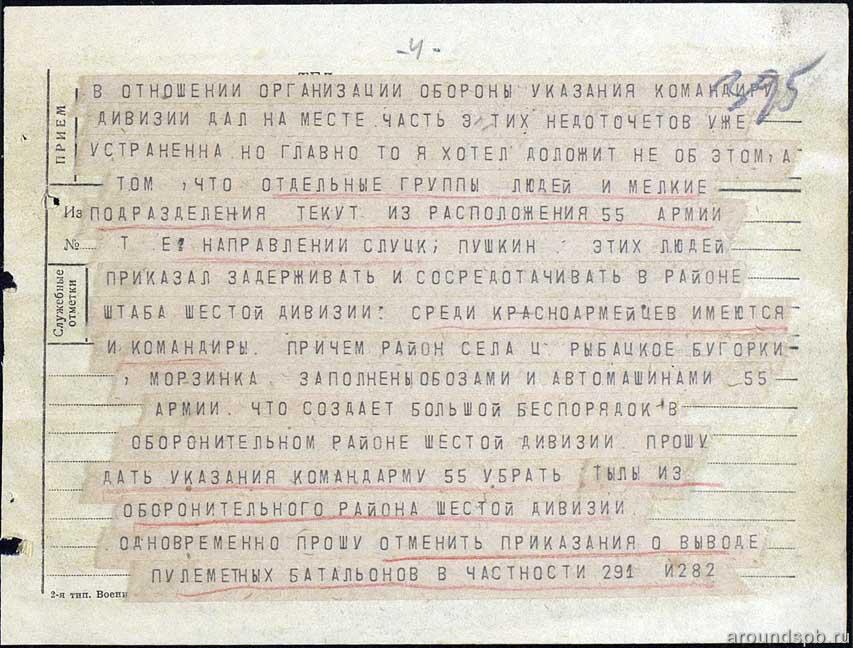 -4-
395
В ОТНОШЕНИИ ОРГАНИЗАЦИИ ОБОРОНЫ УКАЗАНИЯ КОМАНДИРУ
ДИВИЗИИ ДАЛ НА МЕСТЕ ЧАСТЬ ЭТИХ НЕДОТОЧЕТОВ УЖЕ
УСТРАНЕННА НО ГЛАВНО ТО Я ХОТЕЛ ДОЛОЖИТ НЕ ОБ ЭТОМ, А
ТОМ ,ЧТО ОТДЕЛЬНЫЕ ГРУППЫ ЛЮДЕЙ И МЕЛКИЕ
ПОДРАЗДЕЛЕНИЯ ТЕКУТ ИЗ РАСПОЛОЖЕНИЯ 55 АРМИИ
Т Е. НАПРАВЛЕНИИ СЛУЦК, ПУШКИН . ЭТИХ ЛЮДЕЙ
ПРИКАЗАЛ ЗАДЕРЖИВАТЬ И СОСРЕДОТАЧИВАТЬ В РАЙОНЕ
ШТАБА ШЕСТОЙ ДИВИЗИИ. СРЕДИ КРАСНОАРМЕЙЦЕВ ИМЕЮТСЯ
И КОМАНДИРЫ. ПРИЧЕМ РАЙОН СЕЛА Ц. РЫБАЦКОЕ БУГОРКИ
, МОРЗИНКА. ЗАПОЛНЕНЫ ОБОЗАМИ И АВТОМАШИНАМИ 55
АРМИИ. ЧТО СОЗДАЕТ БОЛЬШОЙ БЕСПОРЯДОК В
ОБОРОНИТЕЛЬНОМ РАЙОНЕ ШЕСТОЙ ДИВИЗИИ. ПРОШУ
ДАТЬ УКАЗАНИЯ КОМАНДАРМУ 55 УБРАТЬ ТЫЛЫ ИЗ
ОБОРОНИТЕЛЬНОГО РАЙОНА ШЕСТОЙ ДИВИЗИИ.
.ОДНОВРЕМЕННО ПРОШУ ОТМЕНИТЬ ПРИКАЗАНИЯ О ВЫВОДЕ
ПУЛЕМЕТНЫХ БАТАЛЬОНОВ В ЧАСТНОСТИ 291 И 282
ПРИЕМ
Из
№
Служебные
отметки
2-я тип.
aroundspb.ru